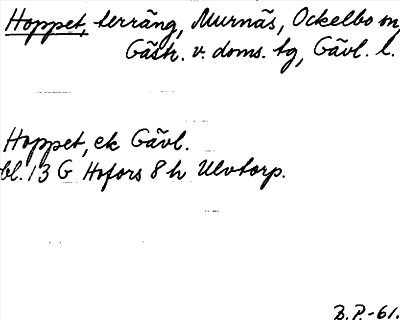 Hoppet, terräng, Murnäs, Ockelbo sn,
Gästr. v. doms. tg, Gävl. l.
Hoppet, ek Gävl.
bl. 13 G Hofors 8 h Ulvtorp.
B.P.-61.